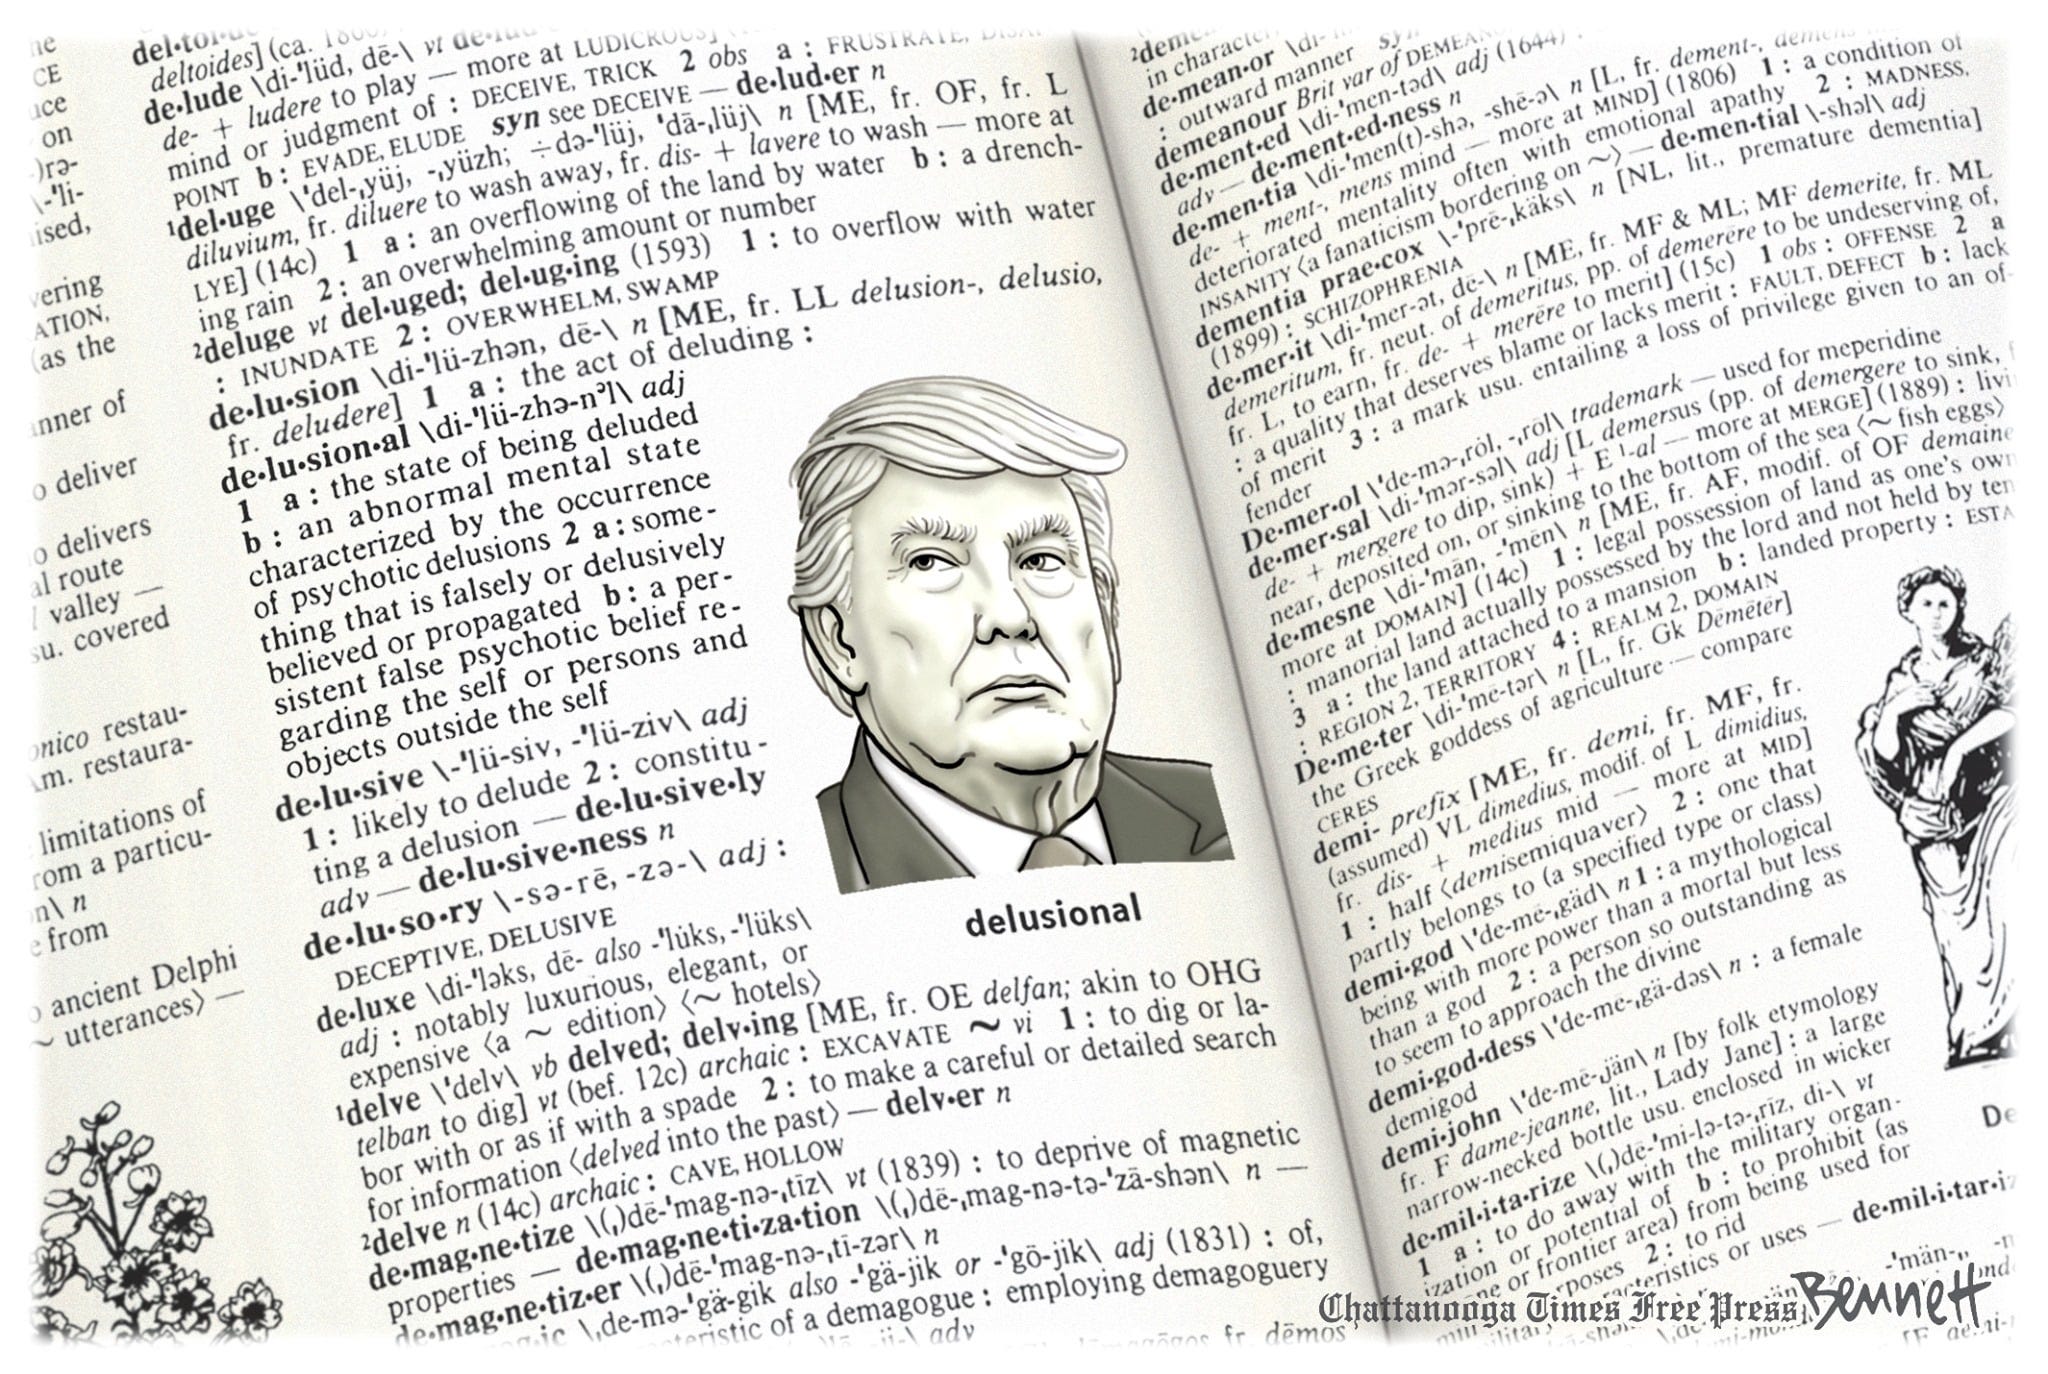 he
CE
uce
on
)rə-
\-'li-
ised,
vering
ATION,
(as the
anner of
o deliver
o delivers
al route
l valley —
su. covered
onico restau-
Am. restaura-
limitations of
rom a particu-
n\ n
e from
o ancient Delphi
~ utterances⟩ —
deltoides] (ca.
de•lude \di-'lüd, dē-\ vt
de- + ludere to play — more at LUDICROUS]
mind or judgment of : DECEIVE, TRICK 2 obs a : FRUSTRATE,
POINT b : EVADE, ELUDE syn see DECEIVE — de•lud•er n
¹del•uge \'del-ˌyüj, -ˌyüzh; ÷də-'lüj, 'dā-ˌlüj\ n [ME, fr. OF, fr. L
diluvium, fr. diluere to wash away, fr. dis- + lavere to wash — more at
LYE] (14c) 1 a : an overflowing of the land by water b : a drench-
ing rain 2 : an overwhelming amount or number
²deluge vt del•uged; del•ug•ing (1593) 1 : to overflow with water
: INUNDATE 2 : OVERWHELM, SWAMP
de•lu•sion \di-'lü-zhən, dē-\ n [ME, fr. LL delusion-, delusio,
fr. deludere] 1 a : the act of deluding :
de•lu•sion•al \di-'lü-zhə-nᵊl\ adj
1 a : the state of being deluded
b : an abnormal mental state
characterized by the occurrence
of psychotic delusions 2 a : some-
thing that is falsely or delusively
believed or propagated b : a per-
sistent false psychotic belief re-
garding the self or persons and
objects outside the self
de•lu•sive \-'lü-siv, -'lü-ziv\ adj
1 : likely to delude 2 : constitu-
ting a delusion — de•lu•sive•ly
adv — de•lu•sive•ness n
de•lu•so•ry \-sə-rē, -zə-\ adj :
DECEPTIVE, DELUSIVE
de•luxe \di-'ləks, dē- also -'lúks, -'lüks\
adj : notably luxurious, elegant, or
expensive ⟨a ~ edition⟩ ⟨~ hotels⟩
¹delve \'delv\ vb delved; delv•ing [ME, fr. OE delfan; akin to OHG
telban to dig] vt (bef. 12c) archaic : EXCAVATE ~ vi 1 : to dig or la-
bor with or as if with a spade 2 : to make a careful or detailed search
for information ⟨delved into the past⟩ — delv•er n
²delve n (14c) archaic : CAVE, HOLLOW
de•mag•ne•tize \(ˌ)dē-'mag-nə-ˌtīz\ vt (1839) : to deprive of magnetic
properties — de•mag•ne•ti•za•tion \(ˌ)dē-ˌmag-nə-tə-'zā-shən\ n —
de•mag•ne•tiz•er \(ˌ)dē-'mag-nə-ˌtī-zər\ n
\ˌde-mə-'gä-gik also -'gä-jik or -'gō-jik\ adj (1831) : of,
of a demagogue : employing demagoguery
adv
dēmagōgos fr. dēmos
delusional
in character
de•mean•or \di-
: outward manner syn
demeanour Brit var of DEMEANOR
de•ment•ed \di-'men-təd\ adj (1644) :
adv — de•ment•ed•ness n
de•men•tia \di-'men(t)-shə, -shē-ə\ n [L, fr. dement-, demens
de- + ment-, mens mind — more at MIND] (1806) 1 : a condition of
deteriorated mentality often with emotional apathy 2 : MADNESS,
INSANITY ⟨a fanaticism bordering on ~⟩ — de•men•tial \-shəl\ adj
dementia prae•cox \-'prē-ˌkäks\ n [NL, lit., premature dementia]
(1899) : SCHIZOPHRENIA
de•mer•it \di-'mer-ət, dē-\ n [ME, fr. MF & ML; MF demerite, fr. ML
demeritum, fr. neut. of demeritus, pp. of demerēre to be undeserving of,
fr. L, to earn, fr. de- + merēre to merit] (15c) 1 obs : OFFENSE 2 a
: a quality that deserves blame or lacks merit : FAULT, DEFECT b : lack
of merit 3 : a mark usu. entailing a loss of privilege given to an of-
fender
De•mer•ol \'de-mə-ˌról, -ˌrōl\ trademark — used for meperidine
de•mer•sal \di-'mər-səl\ adj [L demersus (pp. of demergere to sink, f
de- + mergere to dip, sink) + E ¹-al — more at MERGE] (1889) : livi
near, deposited on, or sinking to the bottom of the sea ⟨~ fish eggs⟩
de•mesne \di-'mān, -'mēn\ n [ME, fr. AF, modif. of OF demaine
more at DOMAIN] (14c) 1 : legal possession of land as one's own
: manorial land actually possessed by the lord and not held by ten
3 a : the land attached to a mansion b : landed property : ESTA
: REGION 2, TERRITORY 4 : REALM 2, DOMAIN
De•me•ter \di-'mē-tər\ n [L, fr. Gk Dēmētēr]
the Greek goddess of agriculture — compare
CERES
demi- prefix [ME, fr. demi, fr. MF, fr.
(assumed) VL dimedius, modif. of L dimidius,
fr. dis- + medius mid — more at MID]
1 : half ⟨demisemiquaver⟩ 2 : one that
partly belongs to (a specified type or class)
demi•god \'de-mē-ˌgäd\ n 1 : a mythological
being with more power than a mortal but less
than a god 2 : a person so outstanding as
to seem to approach the divine
demi•god•dess \'de-me-ˌgä-dəs\ n : a female
demigod
demi•john \'de-mē-ˌjän\ n [by folk etymology
fr. F dame-jeanne, lit., Lady Jane] : a large
narrow-necked bottle usu. enclosed in wicker
de•mil•i•ta•rize \(ˌ)dē-'mi-lə-tə-ˌrīz, di-\ vt
1 a : to do away with the military organ-
ization or potential of b : to prohibit (as
or frontier area) from being used for
2 : to rid
or uses — de•mil•i•tar•iz
De
Chattanooga Times Free Press
Bennett